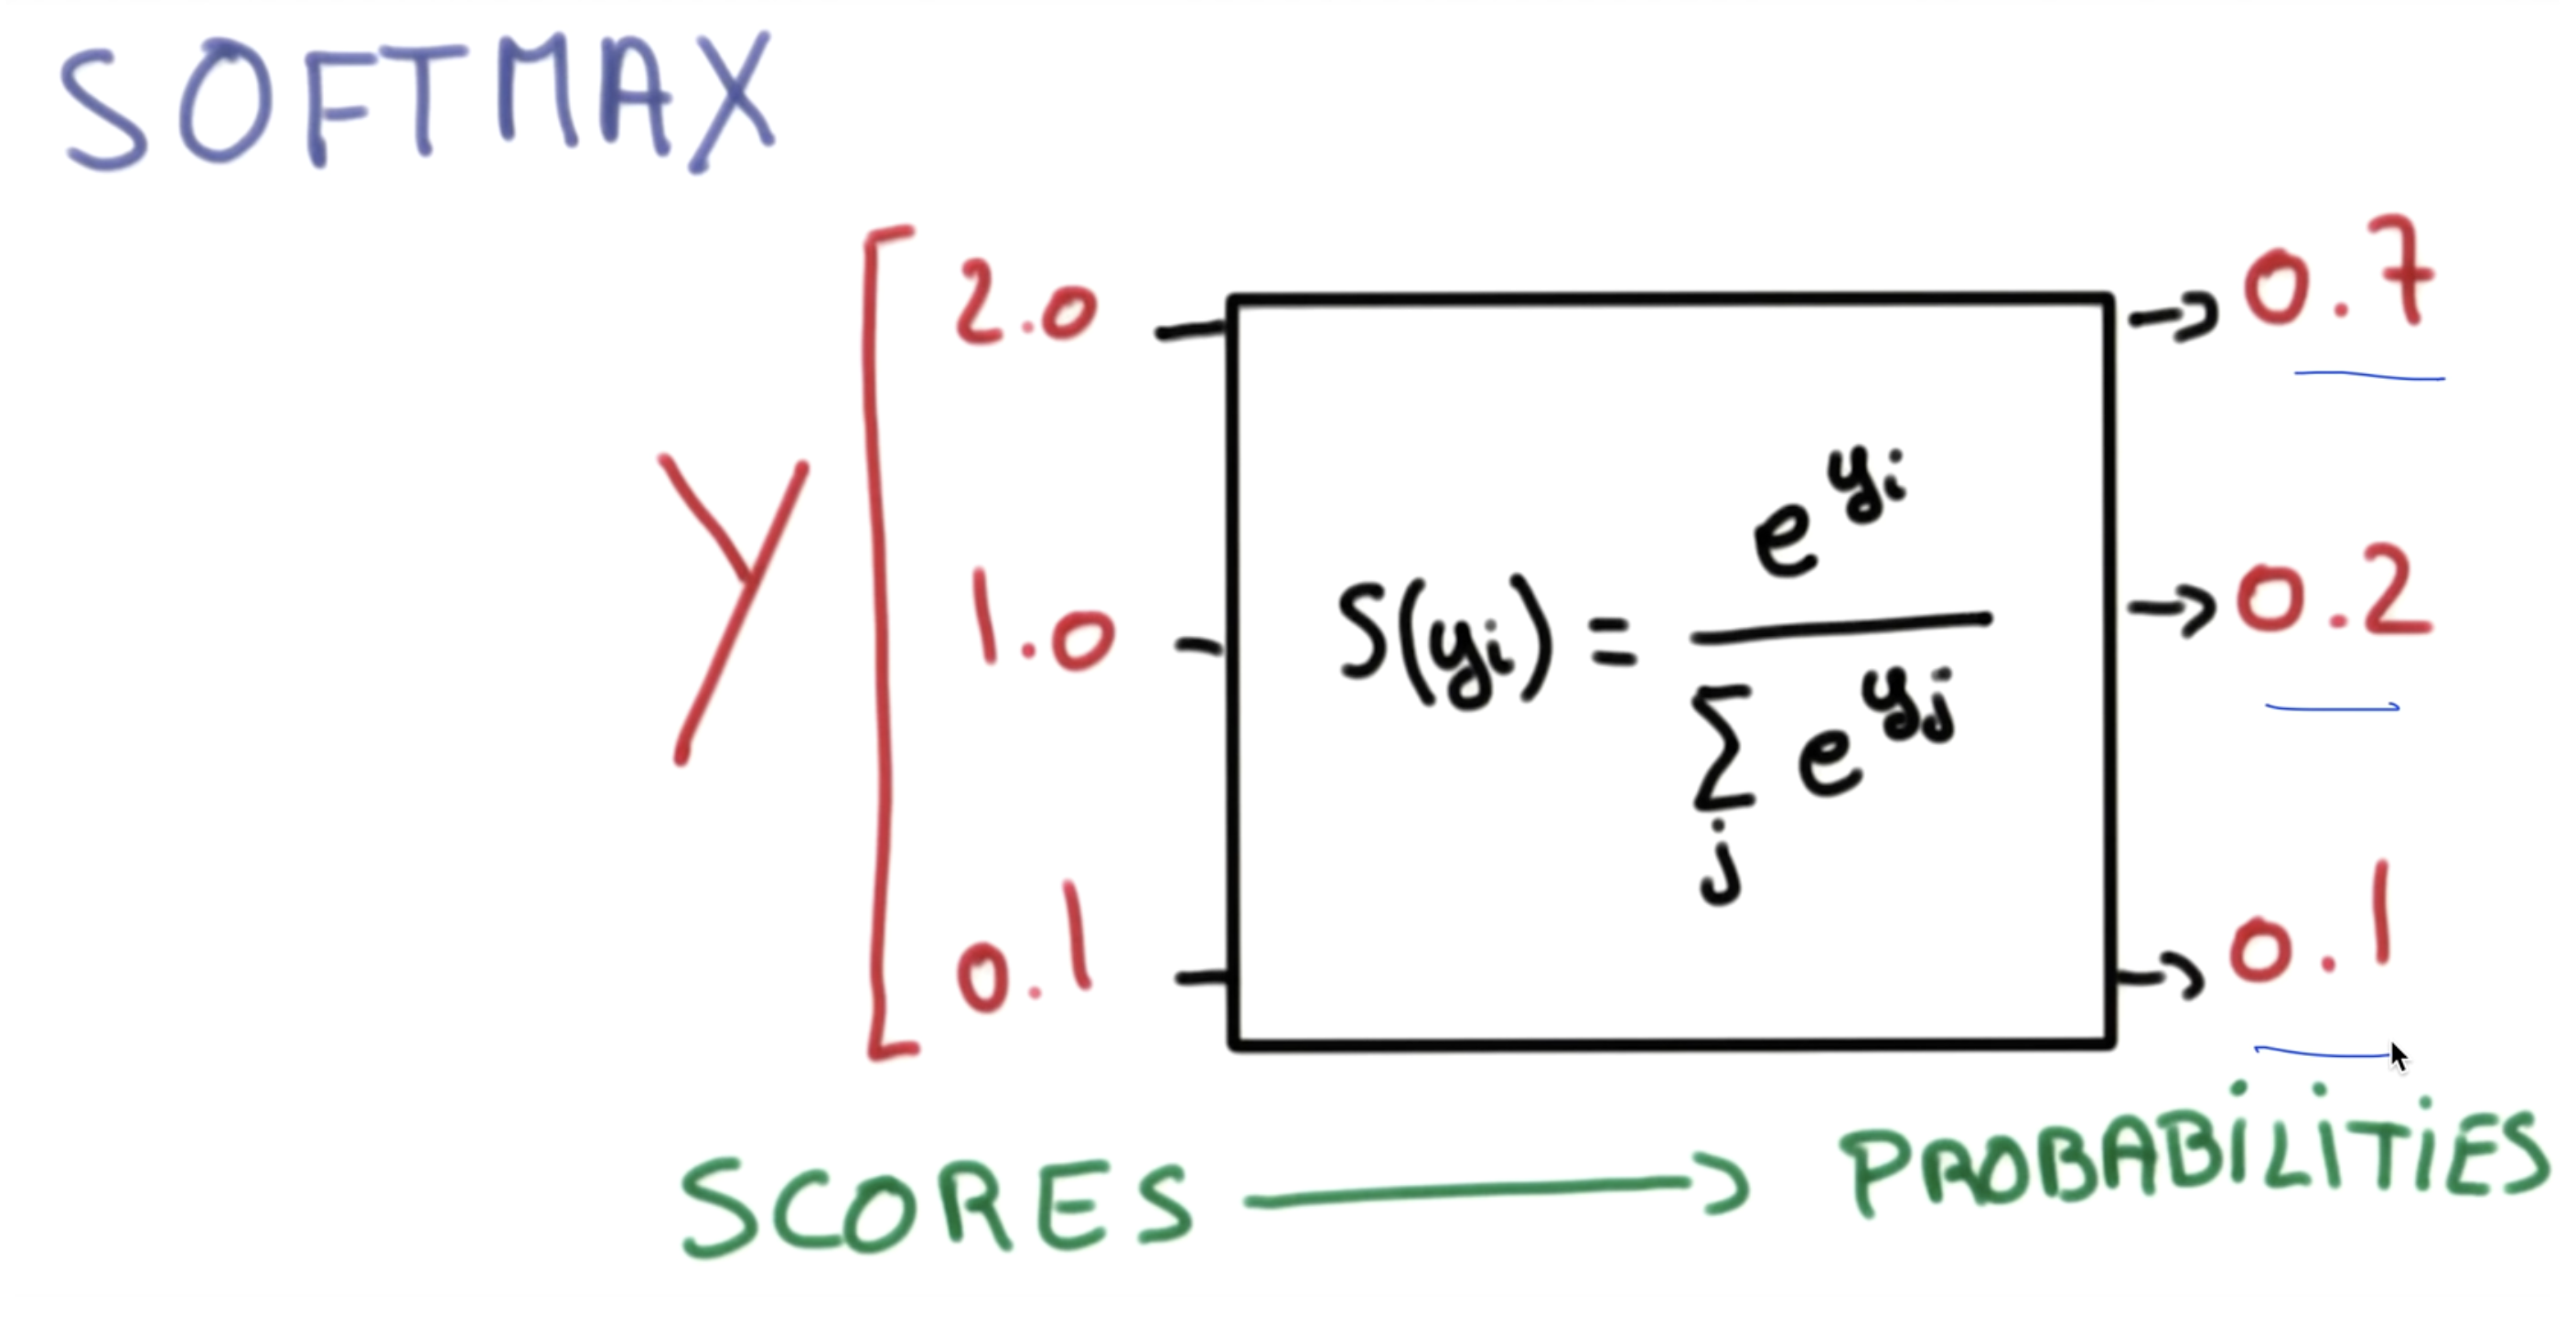 SOFTMAX
Y [ 2.0 → 0.7
1.0 S(yi) = e^yi / Σj e^yj → 0.2
0.1 → 0.1
SCORES → PROBABILITIES